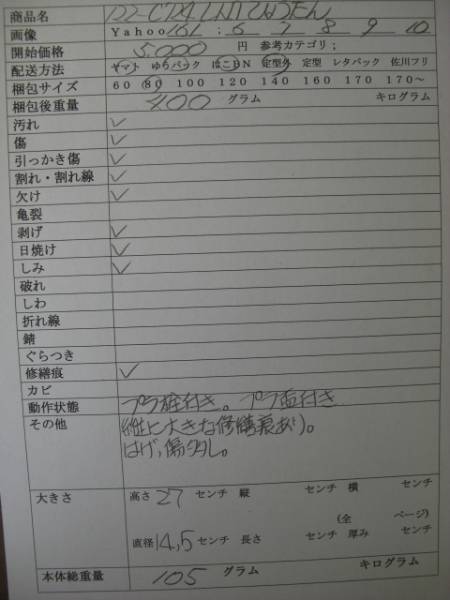 商品名 122-C724 しんぺひょうたん
画像 Yahoo 16L ; 6 7 8 9 10
開始価格 5,000 円 参考カテゴリ;
配送方法 ヤマト ゆうパック はこBN 定型外 定型 レタパック 佐川フリ
梱包サイズ 60 80 100 120 140 160 170 170~
梱包後重量 400 グラム キログラム
汚れ ✓
傷 ✓
引っかき傷 ✓
割れ・割れ線 ✓
欠け ✓
亀裂
剥げ ✓
日焼け ✓
しみ ✓
破れ
しわ
折れ線
錆
ぐらつき
修繕痕 ✓
カビ
動作状態 プラ 付き。プラ 付き
その他 縦に大きな修繕痕あり)。
はげ,傷多し。
大きさ 高さ 27 センチ 縦 センチ 横 センチ
(全 ページ)
直径 14,5 センチ 長さ センチ 厚み センチ
本体総重量 105 グラム キログラム